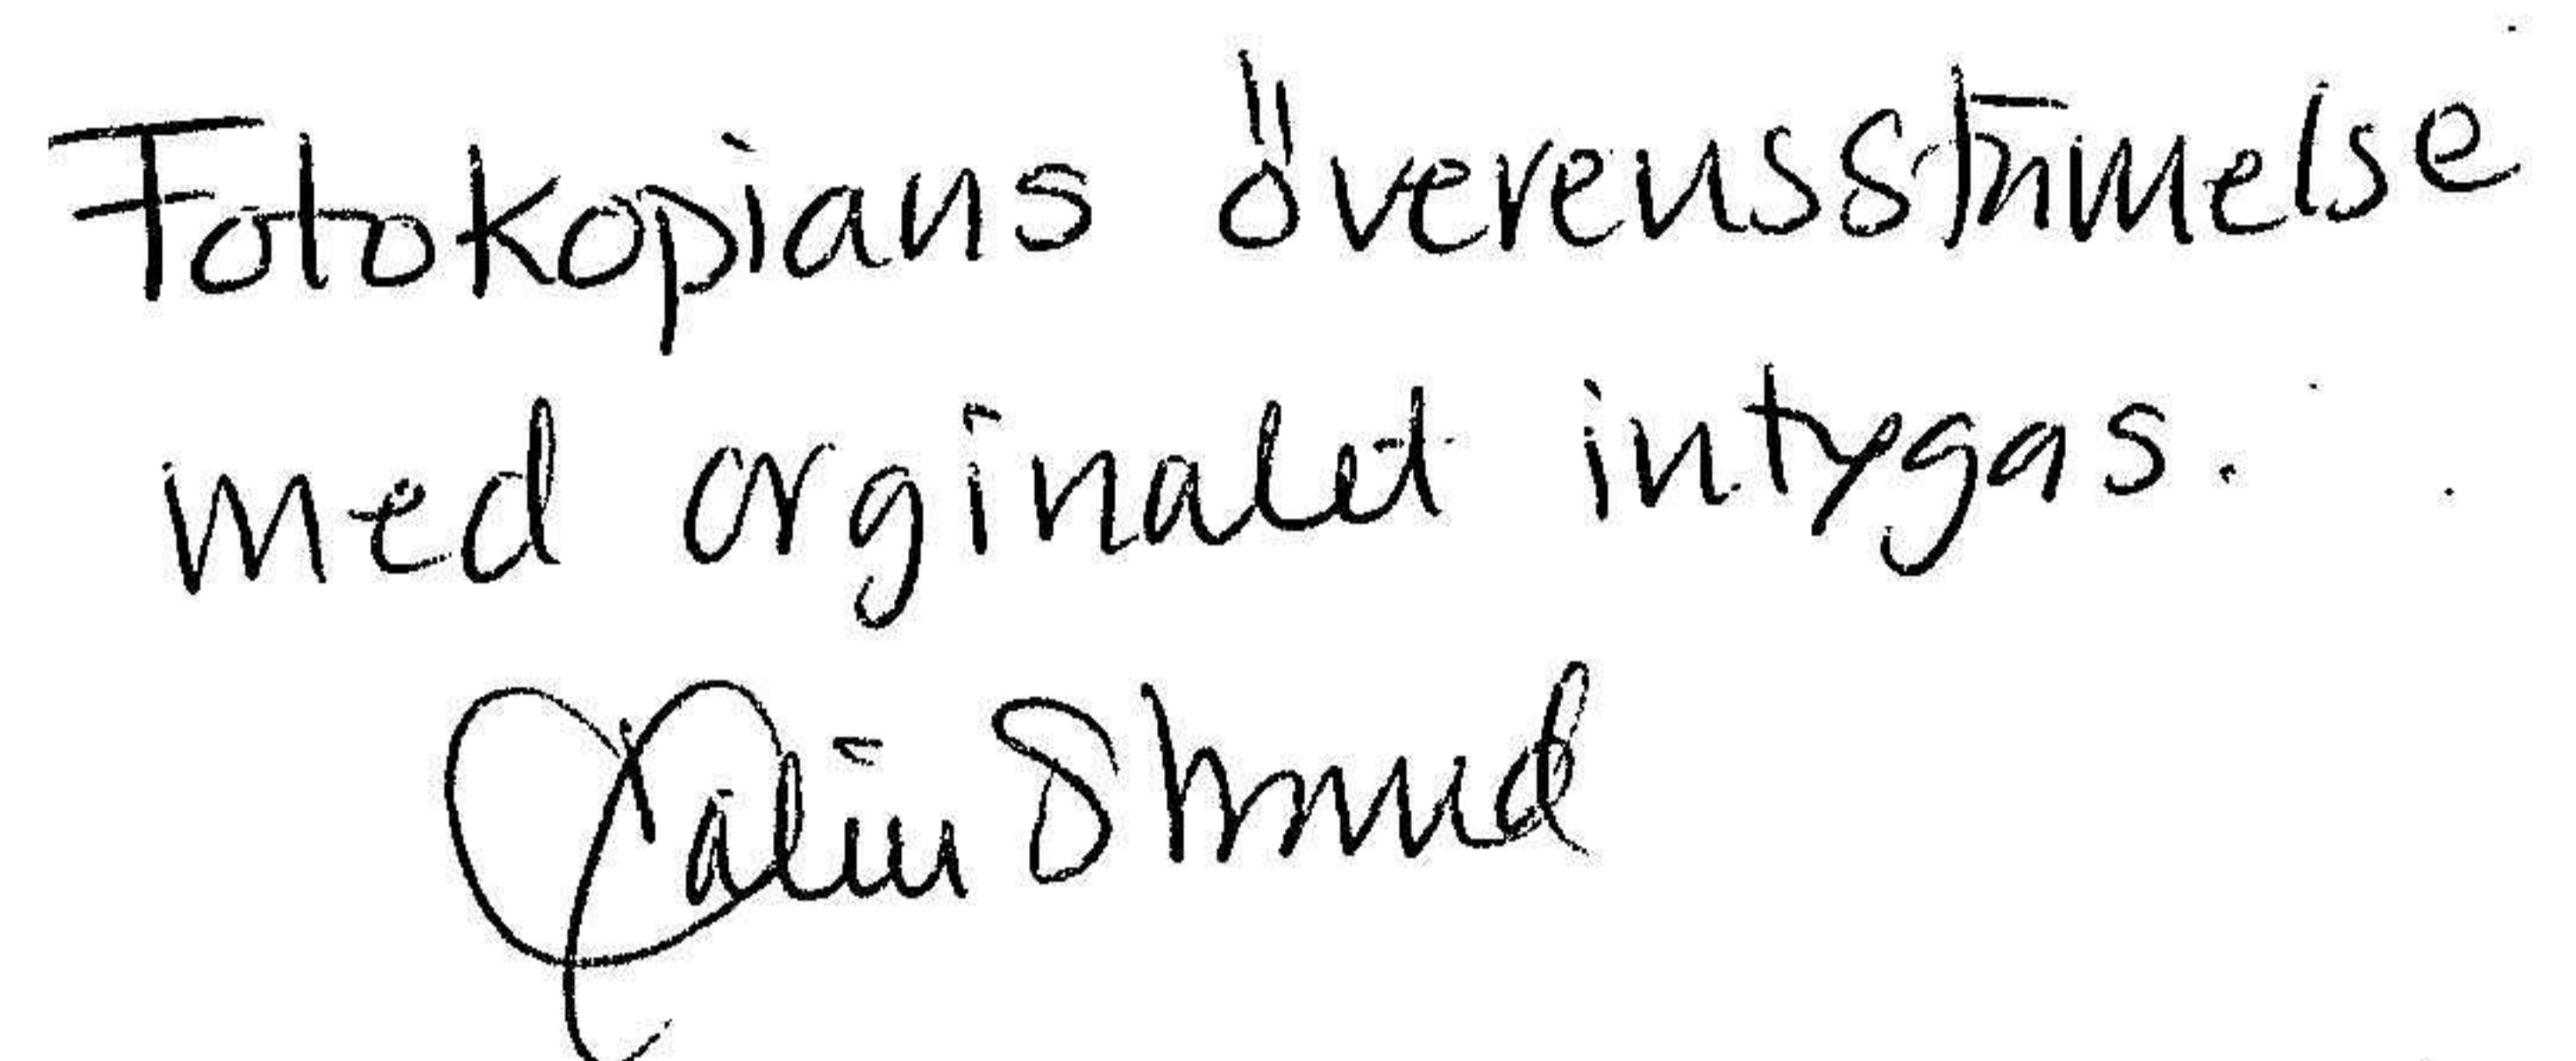 Fotokopians överensstämmelse
med orginalet intygas.